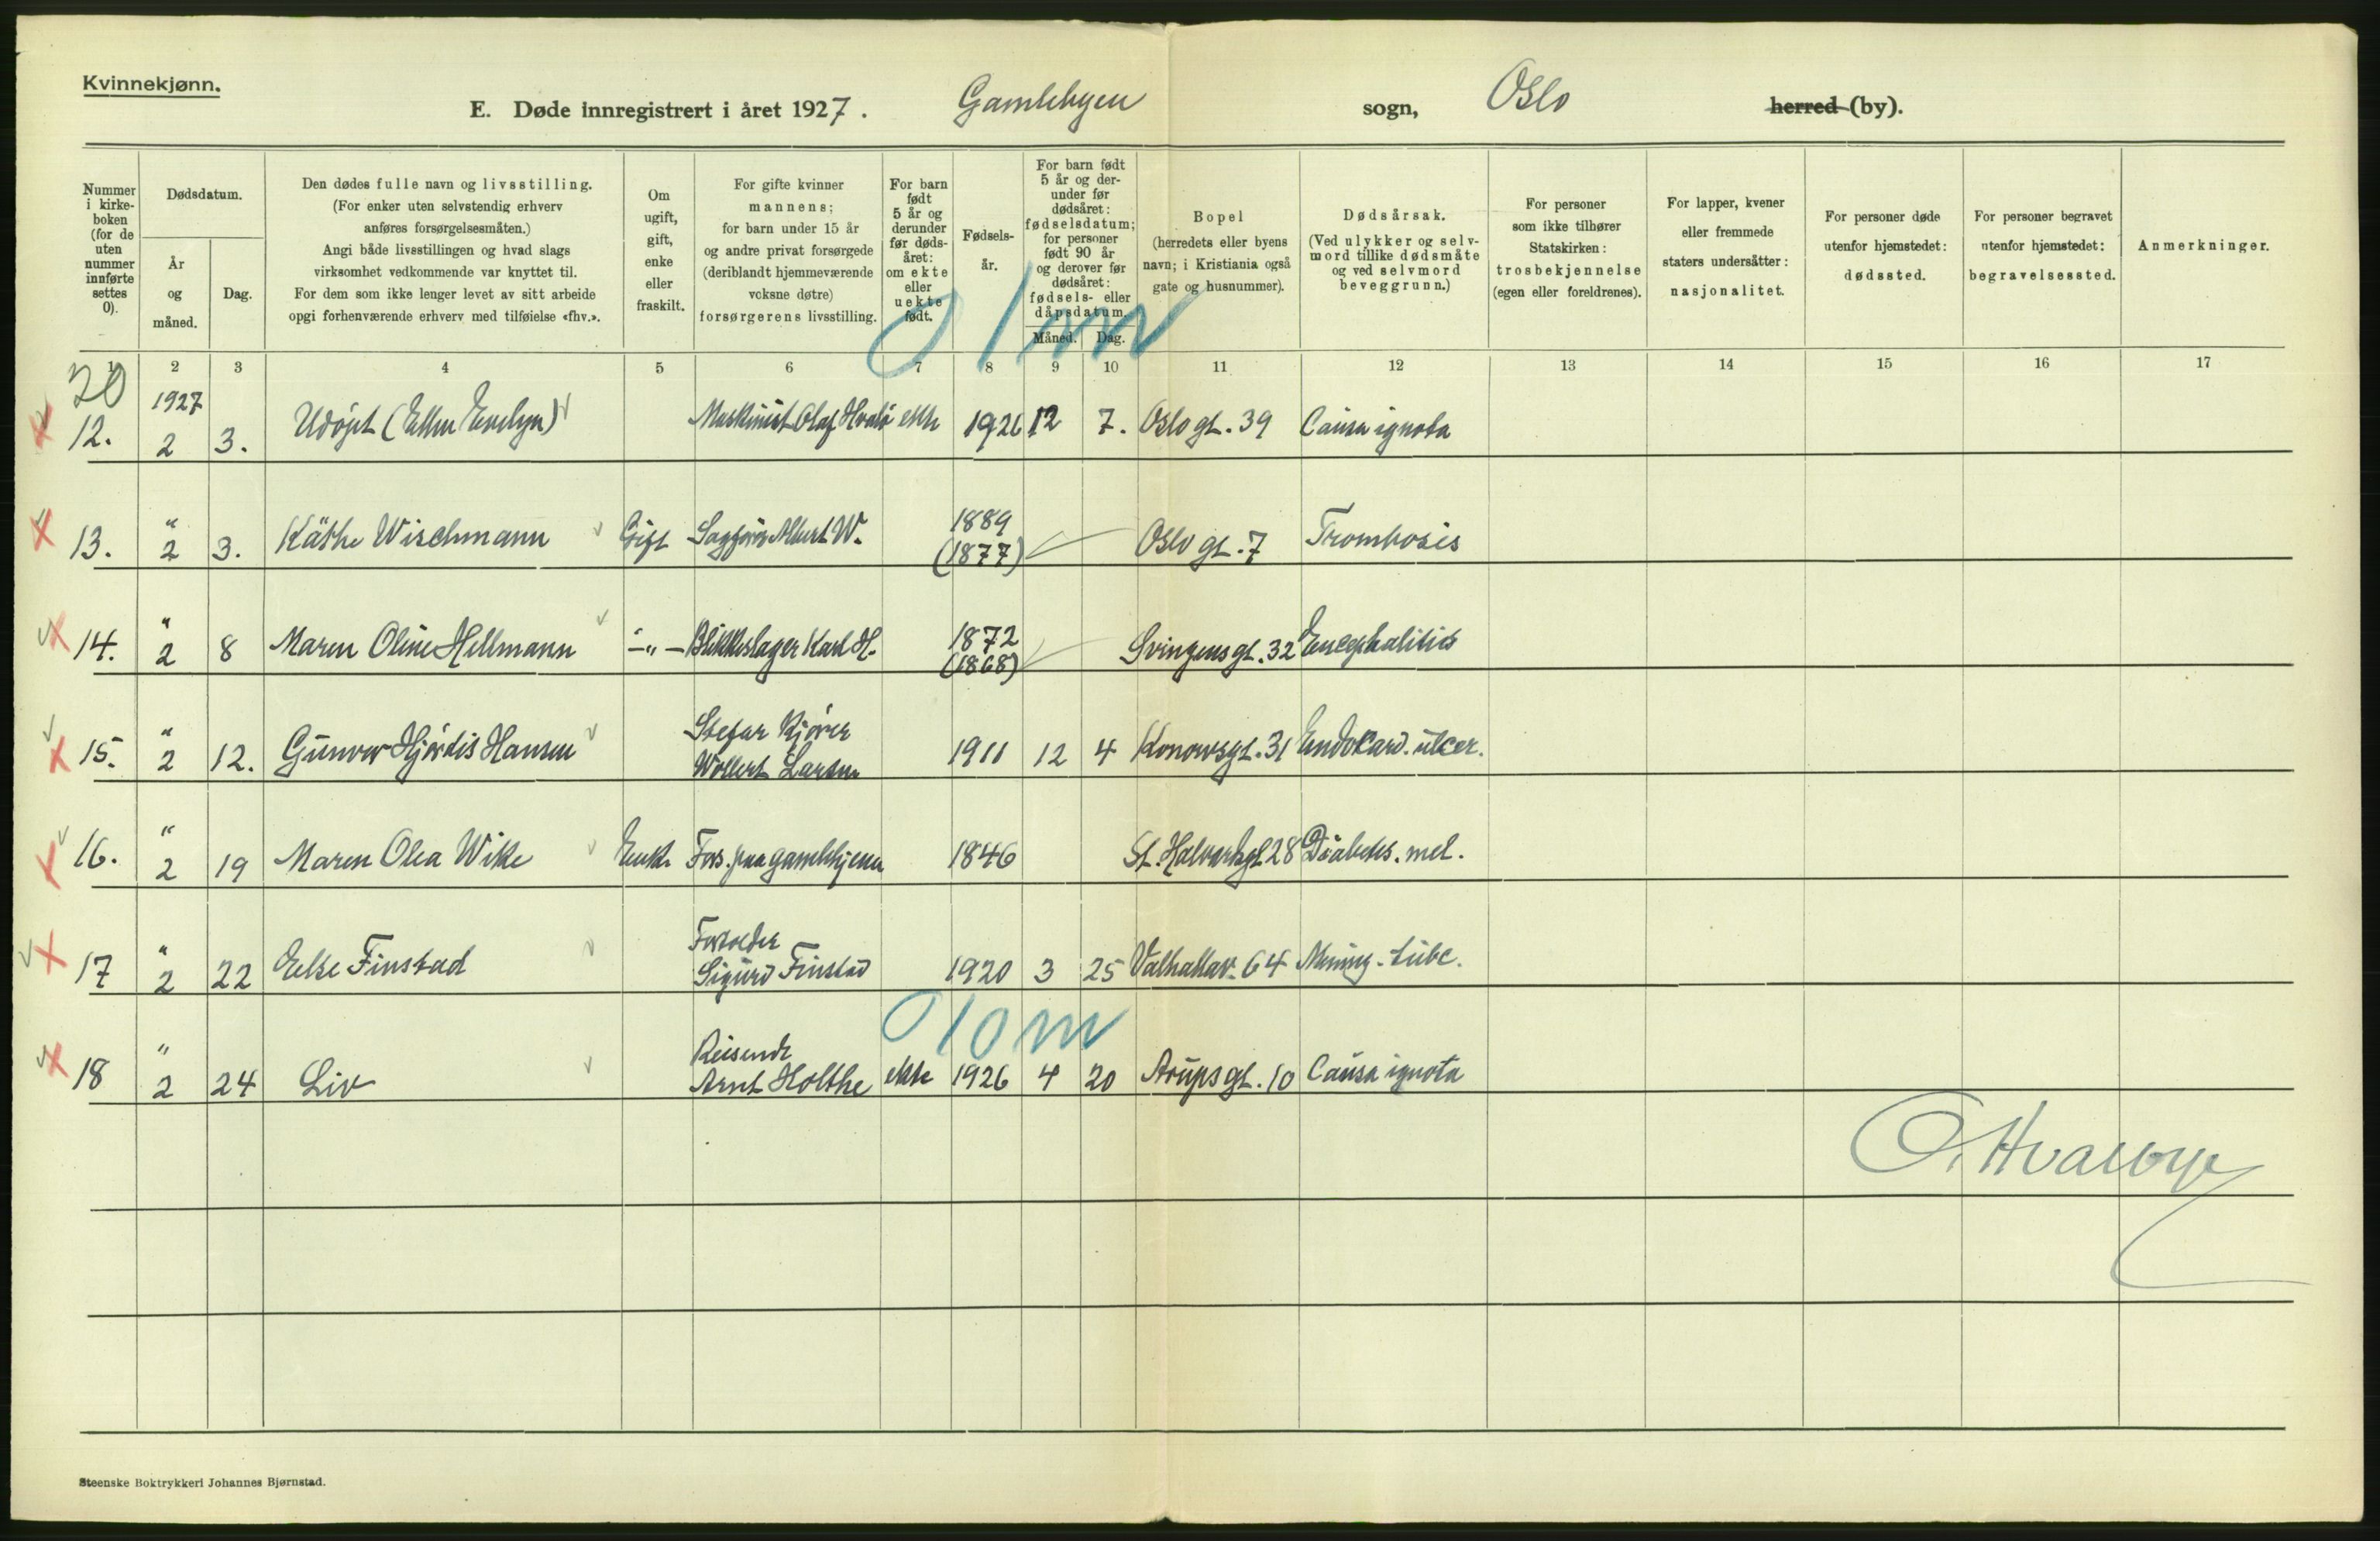 Kvinnekjønn.
E. Døde innregistrert i året 1927. Gamlebyen sogn, Oslo herred (by).
Nummer i kirke-boken (for de uten nummer innførte settes 0).
Dødsdatum.
År og måned.
Dag.
Den dødes fulle navn og livsstilling.
(For enker uten selvstendig erhverv
anføres forsørgelsesmåten.)
Angi både livsstillingen og hvad slags
virksomhet vedkommende var knyttet til.
For dem som ikke lenger levet av sitt arbeide
opgi forhenværende erhverv med tilføielse «fhv.».
Om ugift, gift, enke eller fraskilt.
For gifte kvinner
mannens;
for barn under 15 år
og andre privat forsørgede
(deriblandt hjemmeværende
voksne døtre)
forsørgerens livsstilling.
For barn født 5 år og derunder før døds-året: om ekte eller uekte født.
Fødsels-år.
For barn født
5 år og der-
under før
dødsåret:
fødselsdatum;
for personer
født 90 år
og derover før
dødsåret:
fødsels- eller
dåpsdatum.
Måned. Dag.
Bopel
(herredets eller byens
navn; i Kristiania også
gate og husnummer).
Dødsårsak.
(Ved ulykker og selv-
mord tillike dødsmåte
og ved selvmord
beveggrunn.)
For personer
som ikke tilhører
Statskirken:
trosbekjennelse
(egen eller foreldrenes).
For lapper, kvener
eller fremmede
staters undersåtter:
nasjonalitet.
For personer døde
utenfor hjemstedet:
dødssted.
For personer begravet
utenfor hjemstedet:
begravelsessted.
Anmerkninger.
0 1 m
1 2 3 4 5 6 7 8 9 10 11 12 13 14 15 16 17
20
1927
12. 2 3. Udøpt (Ellen Evelyn) Maskinist Olaf ekte 1926 12 7. Oslogt. 39 Causa ignota
13. " 2 3. Käthe Wischmann Gift Sagfører Albert W. 1889 (1877) Oslo gt. 7 Trombosis
14. " 2 8 Maren Oline Hellmann -"- Blikkslager Karl H. 1872 (1868) Svingensgt. 32 Encephalitis
15. " 2 12. Gunvor Hjørdis Hansen Stefar Kjører Wollert Larsen 1911 12 4 Konowsgt. 31 Endokard. ulcer.
16. " 2 19 Maren Olea Wike Enke Fors. paa gamlehjem 1846 St. Halvardsgt. 28 Diabetes. mel.
17 " 2 22 Else Finstad Forvalter Sigurd Finstad 1920 3 25 Valhallav. 64 Mening. tubc.
0 10 m
18 " 2 24 Liv Reisende Arnt Holthe ekte 1926 4 20 Arupsgt. 10 Causa ignota
Steenske Boktrykkeri Johannes Bjørnstad.